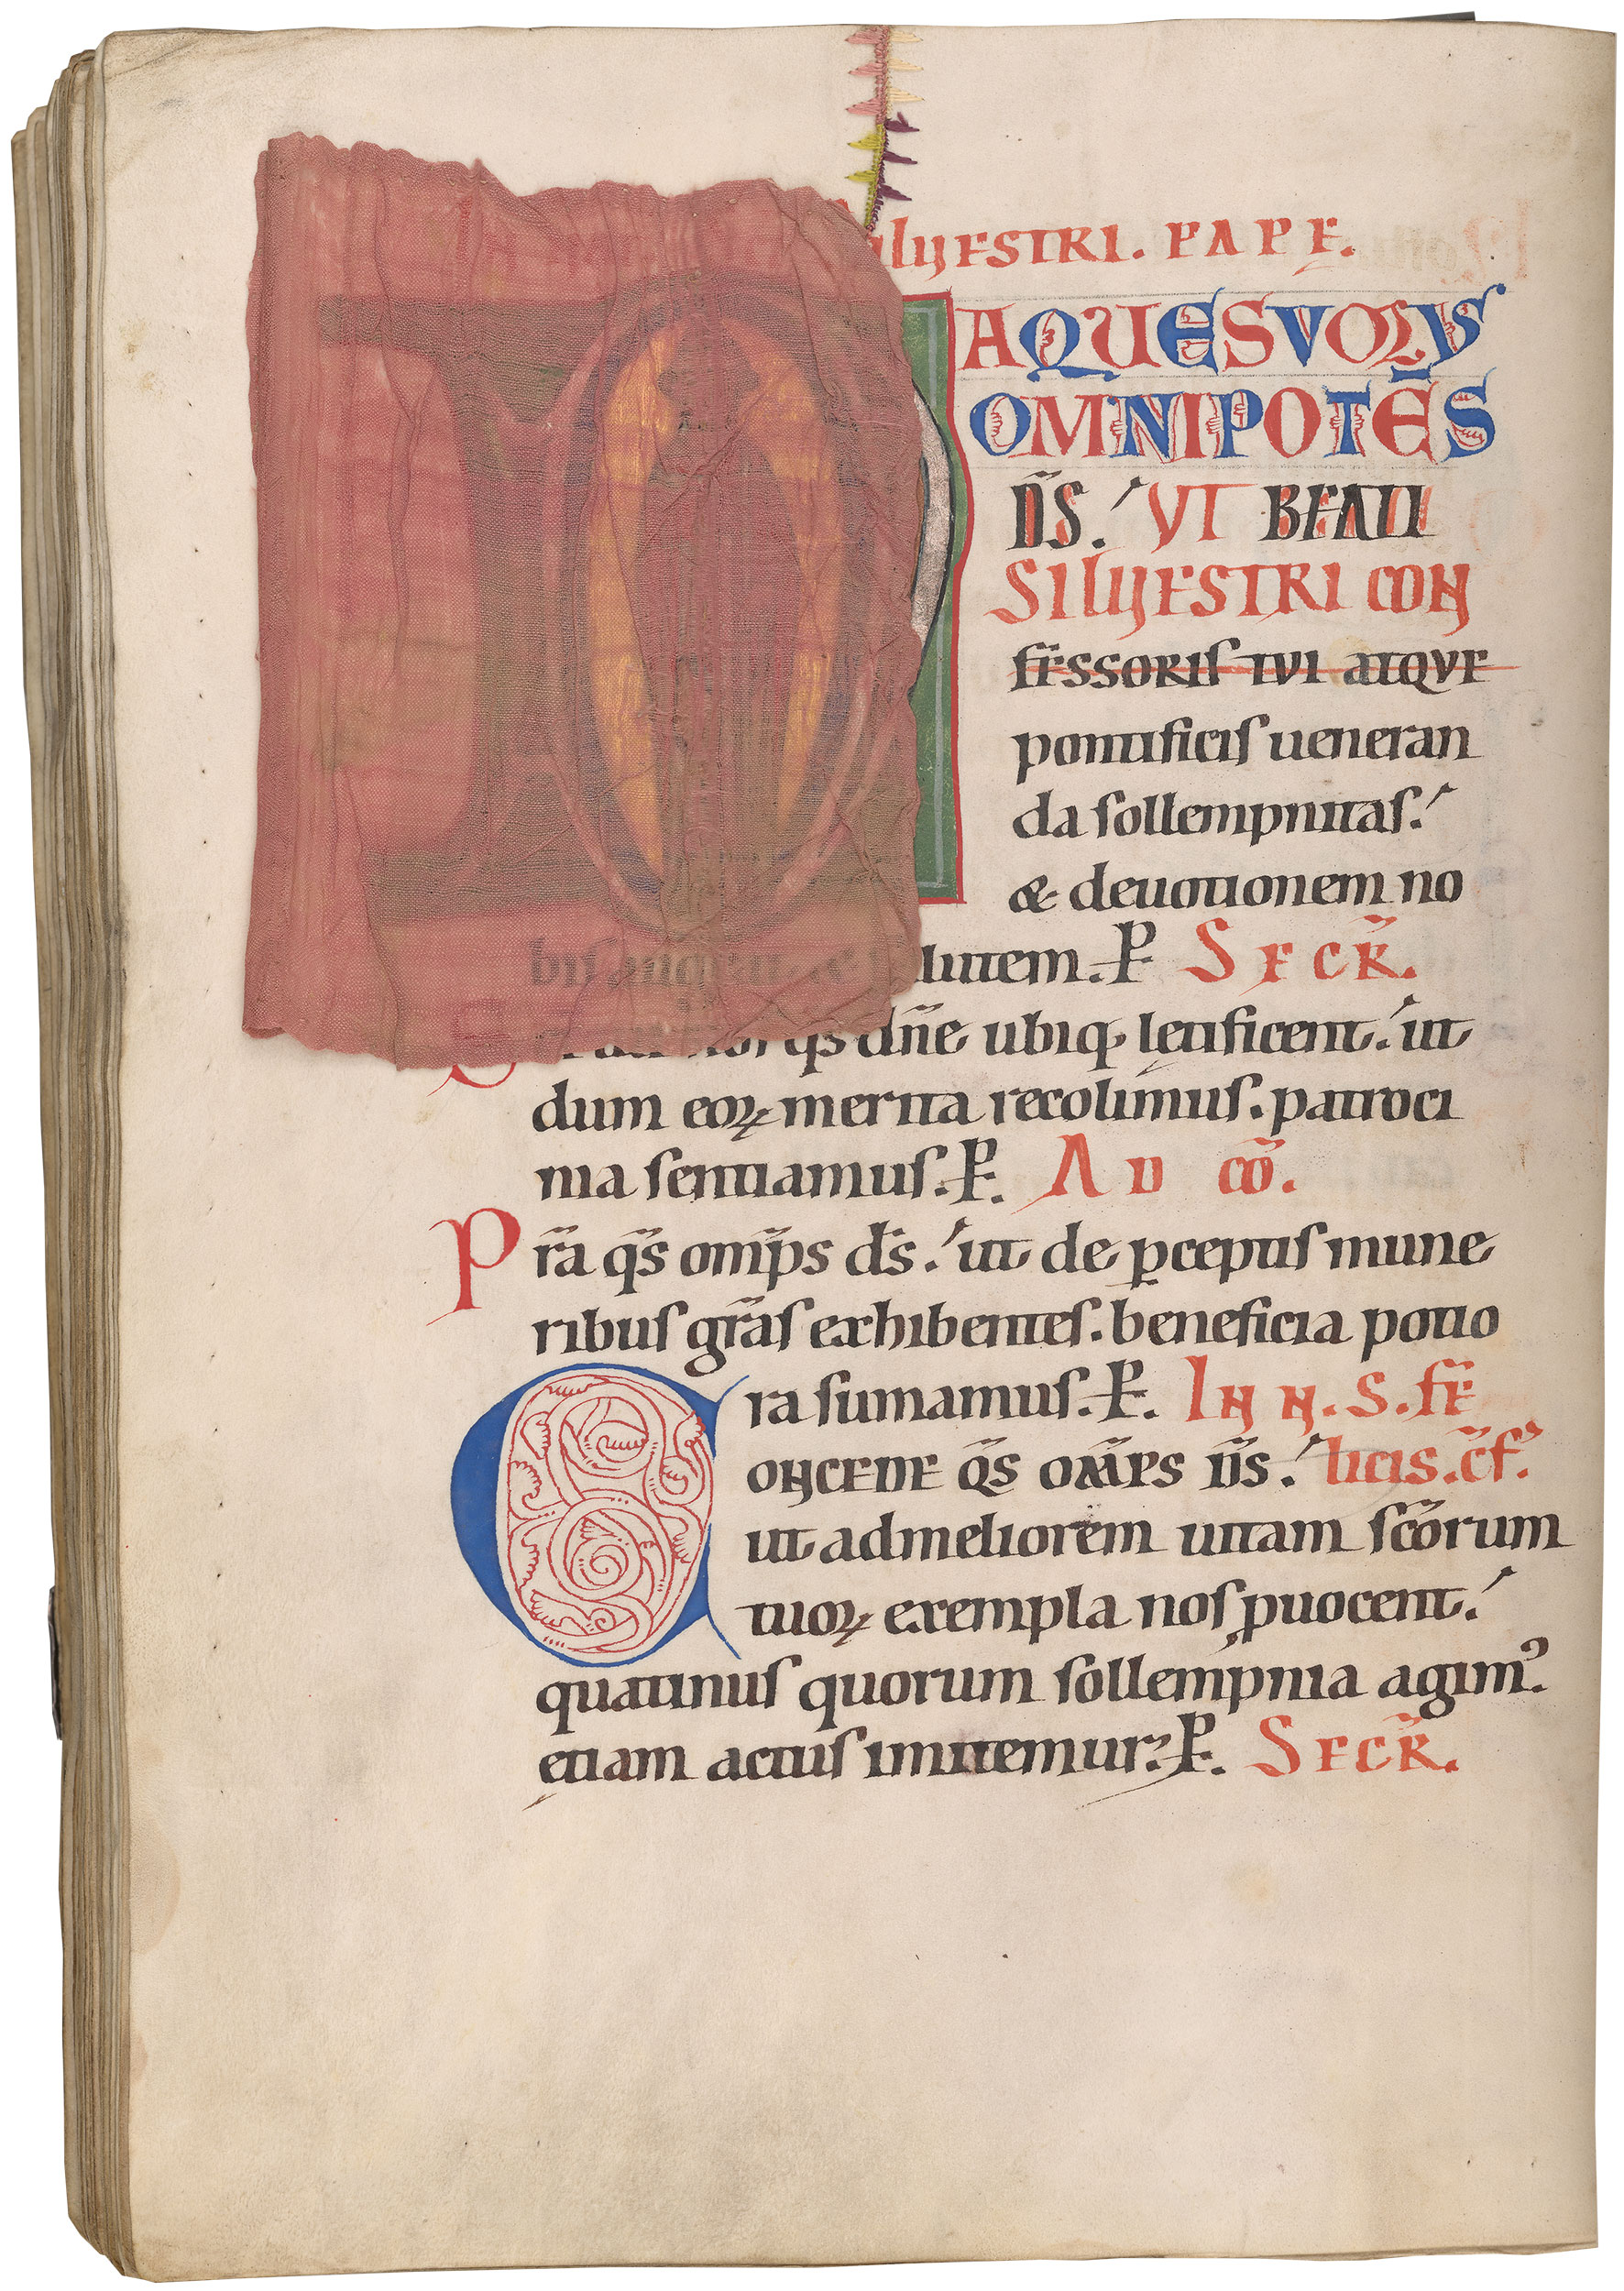 ilvESTRI. PAPE.
AQUESUMUS
OMNIPOTE̅S
D̅S. UT BEATI
SILVESTRI CON
FE̅SSORIS TUI ATQUE
pontificis ueneran
da sollempnitas.
& deuotionem no
bis auge lutem. P SECR̅.
nos q̅s dn̅e ubiq; letificent. ut
dum eoꝝ merita recolimus. patroci
nia sentiamus. P. AD CO̅.
P r̅a q̅s omp̅s d̅s. ut de ꝑceptis mune
ribus gr̅as exhibentes. beneficia potio
ra sumamus. P. IN N. S. FE
CONCEDE Q̅S OMP̅S D̅S. licis. c̅f.
ut ad meliorem uitam sc̅orum
tuoꝝ exempla nos ꝓuocent.
quatinus quorum sollempnia agim᾽.
etiam actus imitemur. P. SECR̅.